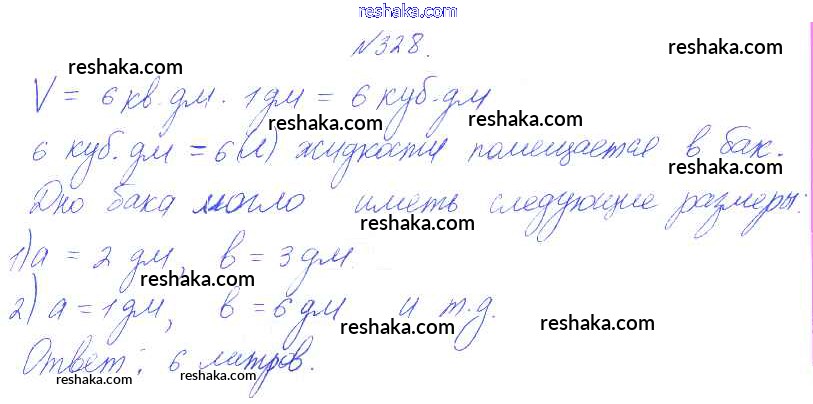 reshaka.com
№328.
reshaka.com
reshaka.com
V = 6 кв. дм · 1 дм = 6 куб. дм
reshaka.com
reshaka.com
6 куб. дм = 6 (л) жидкости помещается в бак.
reshaka.com
Дно бака могло иметь следующие размеры:
reshaka.com
1) a = 2 дм, в = 3 дм
reshaka.com
2) a = 1 дм, в = 6 дм и т.д.
reshaka.com
reshaka.com
Ответ: 6 литров.
reshaka.com
reshaka.com